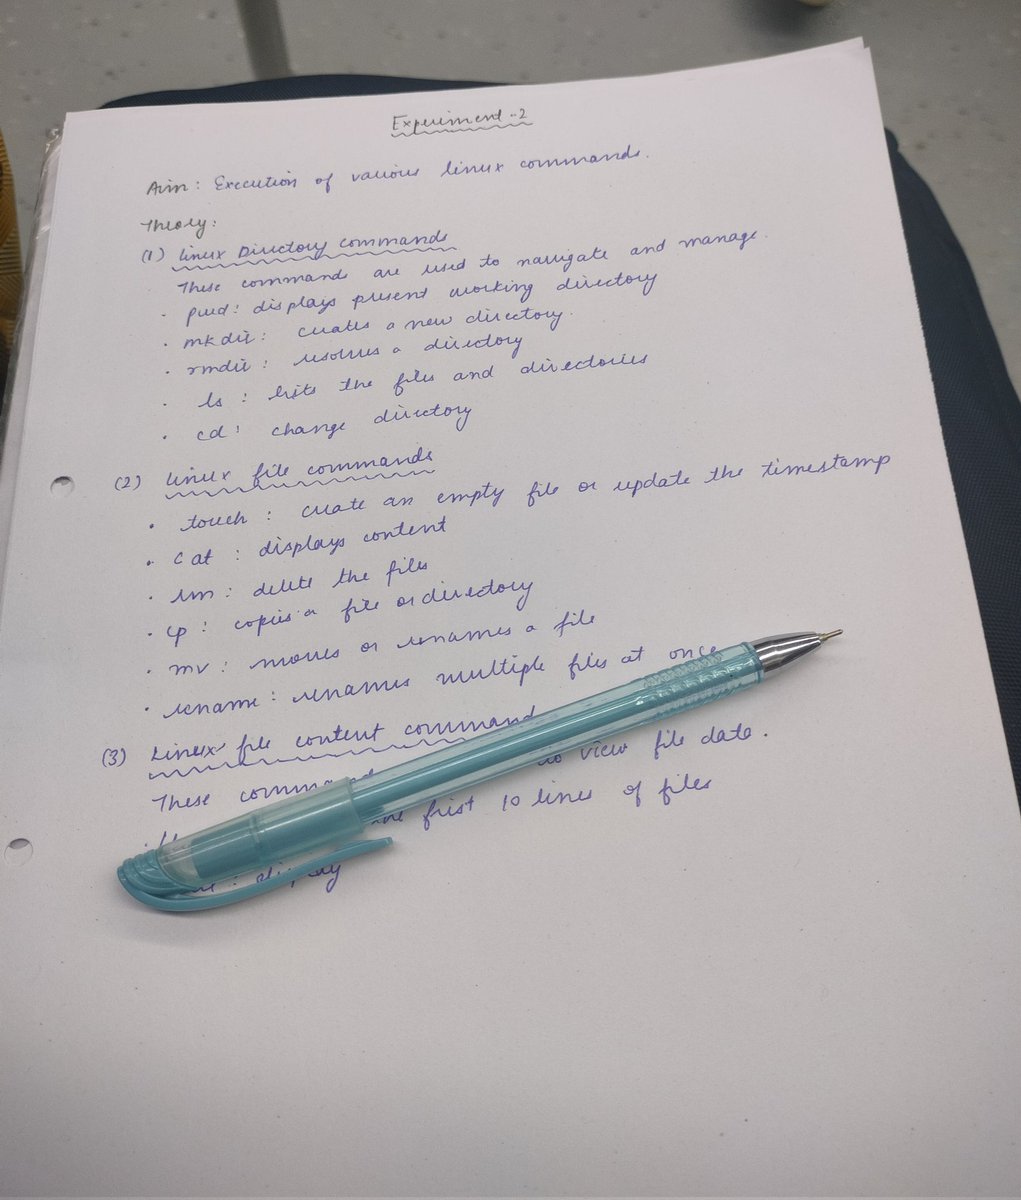 Experiment-2
Aim: Execution of various linux commands.
Theory:
(1) Linux Directory commands
These commands are used to navigate and manage.
· pwd: displays present working directory
· mkdir: creates a new directory.
· rmdir: resolves a directory
· ls: lists the files and directories
· cd: change directory
(2) Linux file commands
· touch: create an empty file or update the timestamp
· cat: displays content
· rm: delete the files
· cp: copies a file or directory
· mv: moves or renames a file
· rename: renames multiple files at once
(3) Linux file content command
These to view file date.
first 10 lines of files
: display